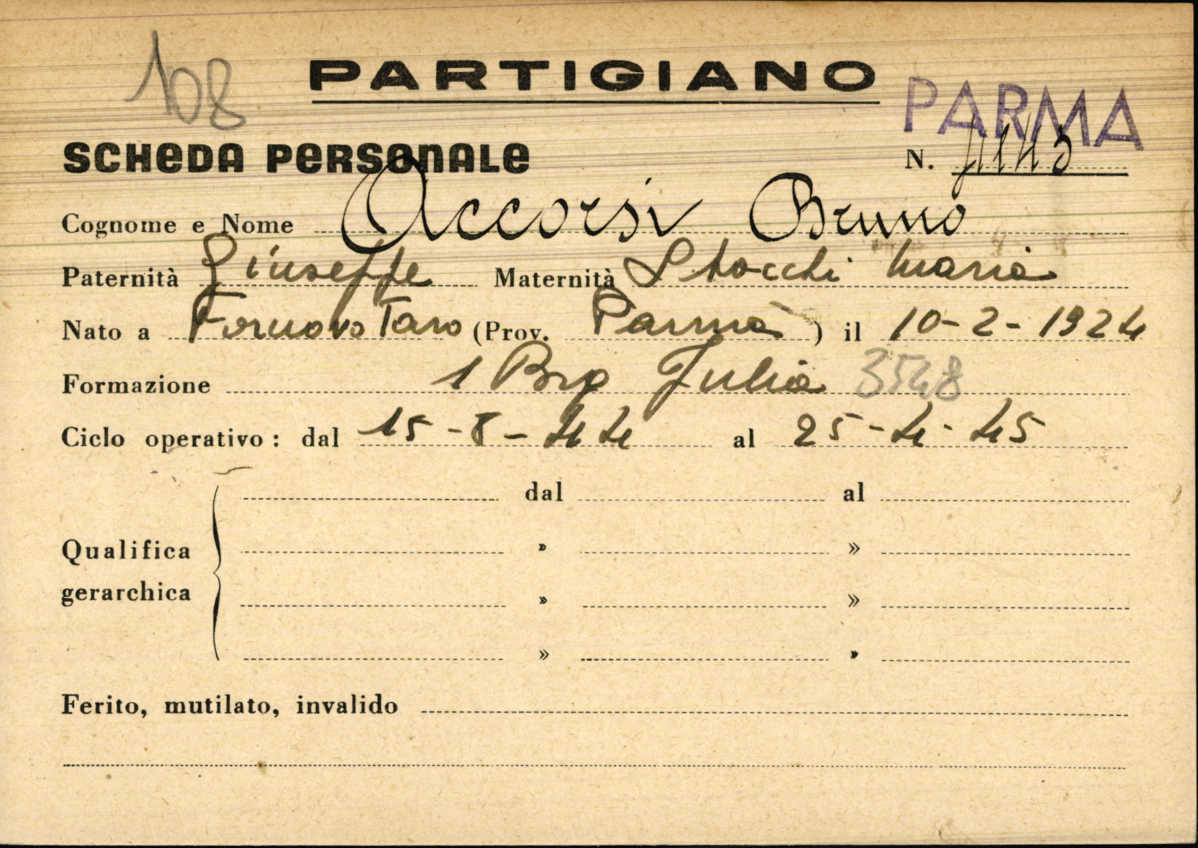 108
PARTIGIANO
PARMA
SCHEDA PERSONALE
N.
Cognome e Nome Accorsi Bruno
Paternità Giuseppe Maternità Stocchi Maria
Nato a Fornovo Taro (Prov. Parma) il 10-2-1924
Formazione 1 Brg Julia 3548
Ciclo operativo: dal 15-8-44 al 25-4-45
dal al
Qualifica » »
gerarchica » »
» »
Ferito, mutilato, invalido